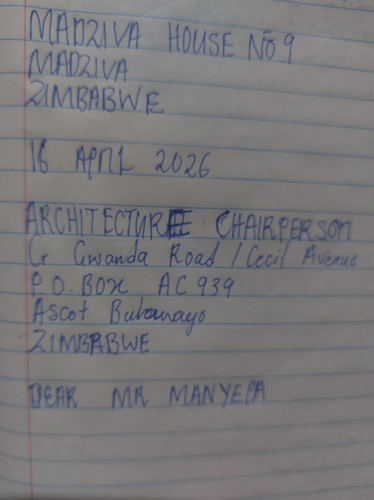 MADZIVA HOUSE No 9
MADZIVA
ZIMBABWE
16 APRIL 2026
ARCHITECTURE CHAIRPERSON
Cr Gwanda Road / Cecil Avenue
P.O. BOX AC 939
Ascot Bulawayo
ZIMBABWE
DEAR MR MANYEPA